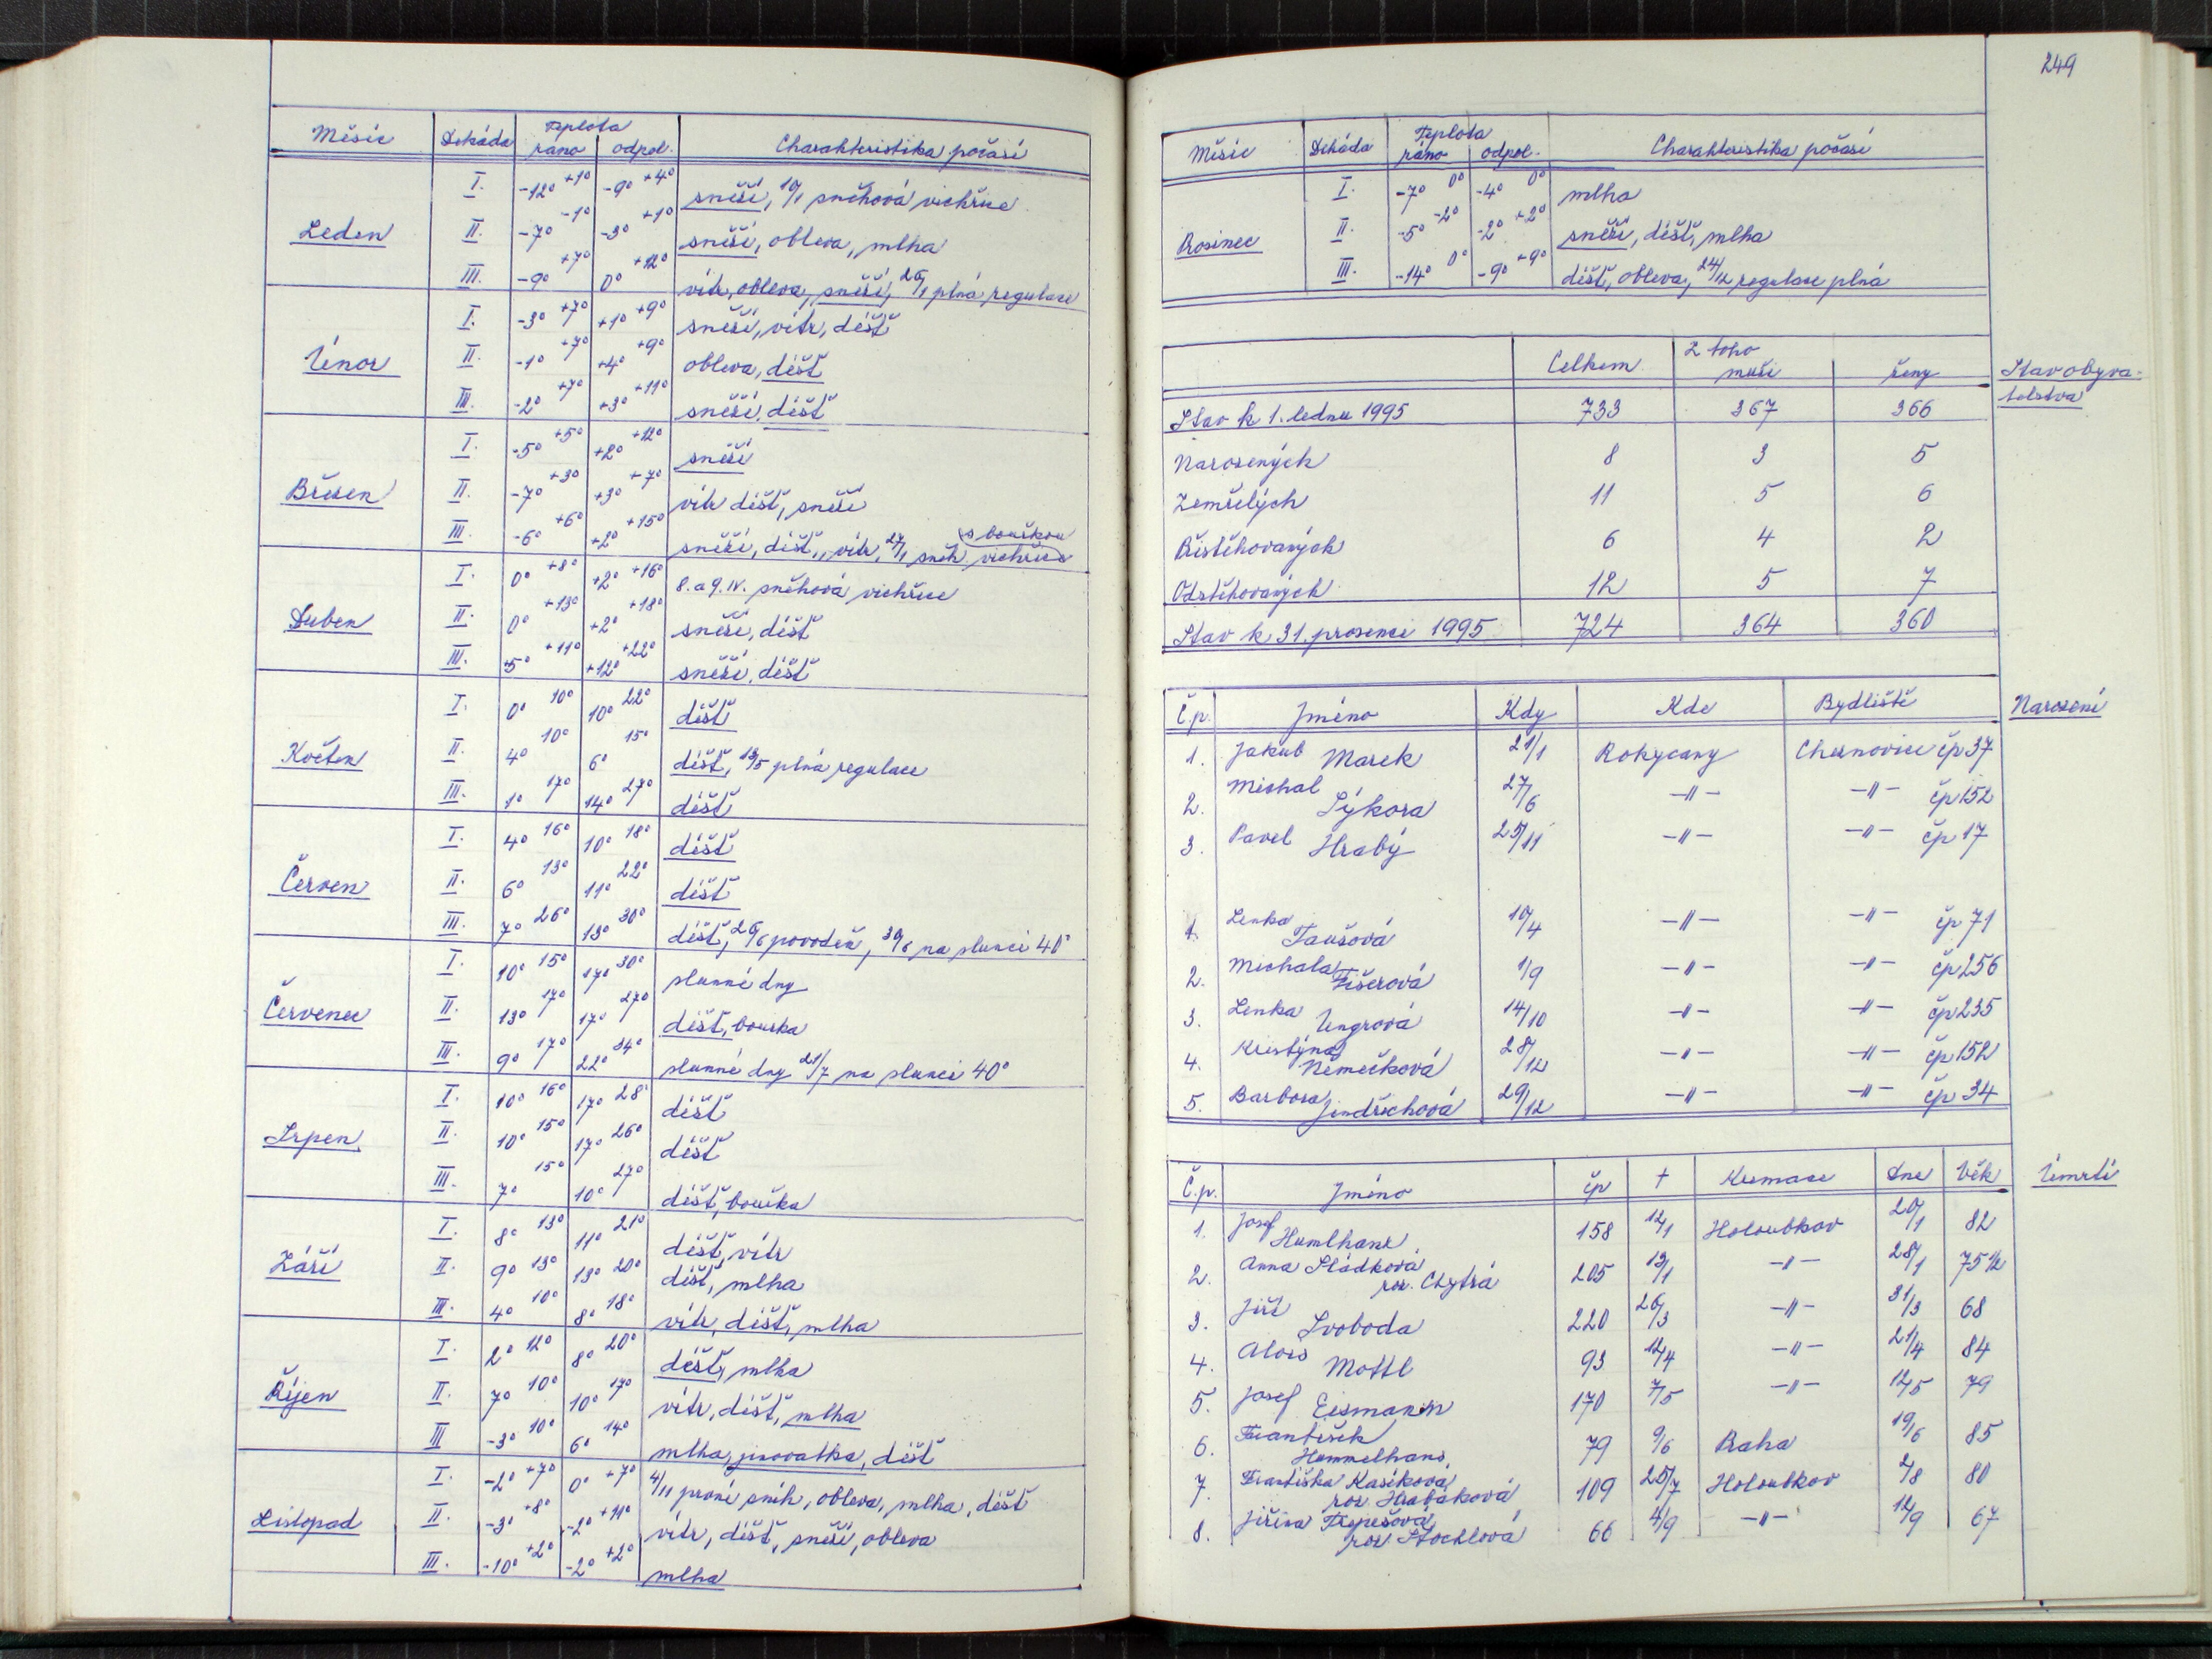 Měsíc Dekáda Teplota Charakteristika počasí
ráno odpol.
Leden
I. -12° +1° -9° +4° sněží, 10/1 sněhová vichřice
II. -7° -1° -3° +1° sněží, obleva, mlha
III. -9° +7° 0° +12° vítr, obleva, sněží, 26/1 plná regulace
Únor
I. -3° +7° +1° +9° sněží, vítr, déšť
II. -1° +7° +4° +9° obleva, déšť
III. -2° +7° +3° +11° sněží, déšť
Březen
I. -5° +5° +2° +12° sněží
II. -7° +3° +3° +7° vítr déšť, sněží
III. -6° +6° +2° +15° sněží, déšť, vítr, 27/1 sněh. vichřice s bouřkou
Duben
I. 0° +8° +2° +16° 8. a 9. IV. sněhová vichřice
II. 0° +13° +2° +18° sněží, déšť
III. +5° +11° +12° +22° sněží, déšť
Květen
I. 0° 10° 10° 22° déšť
II. 4° 10° 6° 15° déšť, 13/5 plná regulace
III. 1° 17° 14° 27° déšť
Červen
I. 4° 16° 10° 18° déšť
II. 6° 13° 11° 22° déšť
III. 7° 26° 13° 30° déšť, 26/6 povodeň, 30/6 na slunci 40°
Červenec
I. 10° 15° 17° 30° slunné dny
II. 13° 17° 17° 27° déšť, bouřka
III. 9° 17° 22° 34° slunné dny 21/7 na slunci 40°
Srpen
I. 10° 16° 17° 28° déšť
II. 10° 15° 17° 26° déšť
III. 7° 15° 10° 27° déšť, bouřka
Září
I. 8° 13° 11° 21° déšť, vítr
II. 9° 13° 13° 20° déšť, mlha
III. 4° 10° 8° 18° vítr, déšť, mlha
Říjen
I. 2° 12° 8° 20° déšť, mlha
II. 7° 10° 10° 17° vítr, déšť, mlha
III -3° 10° 6° 14° mlha, jinovatka, déšť
Listopad
I. -2° +7° 0° +7° 4/11 první sníh, obleva, mlha, déšť
II. -3° +8° -2° +11° vítr, déšť, sněží, obleva
III. -10° +2° -2° +2° mlha
249
Měsíc Dekáda Teplota Charakteristika počasí
ráno odpol.
Prosinec
I. -7° 0° -4° 0° mlha
II. -5° -2° -2° +2° sněží, déšť, mlha
III. -14° 0° -9° +9° déšť, obleva, 24/12 regulace plná
Celkem Z toho
muži ženy
Stav obyva-
telstva
Stav k 1. lednu 1995 733 367 366
Narozených 8 3 5
Zemřelých 11 5 6
Přistěhovaných 6 4 2
Odstěhovaných 12 5 7
Stav k 31. prosinci 1995 724 364 360
Č.p. Jméno Kdy Kde Bydliště
Narození
1. Jakub Marek 21/1 Rokycany Cheznovice čp 37
2. Michal Sýkora 27/6 -"- -"- čp 152
3. Pavel Hrabý 25/11 -"- -"- čp 17
1. Lenka Taušová 10/4 -"- -"- čp 71
2. Michala Fišerová 1/9 -"- -"- čp 256
3. Lenka Ungrová 14/10 -"- -"- čp 235
4. Kristýna Němečková 28/12 -"- -"- čp 152
5. Barbora Jindřichová 29/12 -"- -"- čp 34
Č.p. Jméno čp † Kremace dne Věk
Úmrtí
1. Josef Humlhanz 158 12/1 Holoubkov 20/1 82
2. Anna Sládková 205 13/1 -"- 28/1 75 1/2
roz. Chytrá
3. Jiří Svoboda 220 26/3 -"- 31/3 68
4. Alois Mottl 93 12/4 -"- 21/4 84
5. Josef Eismann 170 7/5 -"- 12/5 79
6. František Hommelhans 79 9/6 Praha 19/6 85
7. Františka Kasíková 109 25/7 Holoubkov 2/8 80
roz. Hrabáková
8. Jiřina 66 4/9 -"- 12/9 67
roz